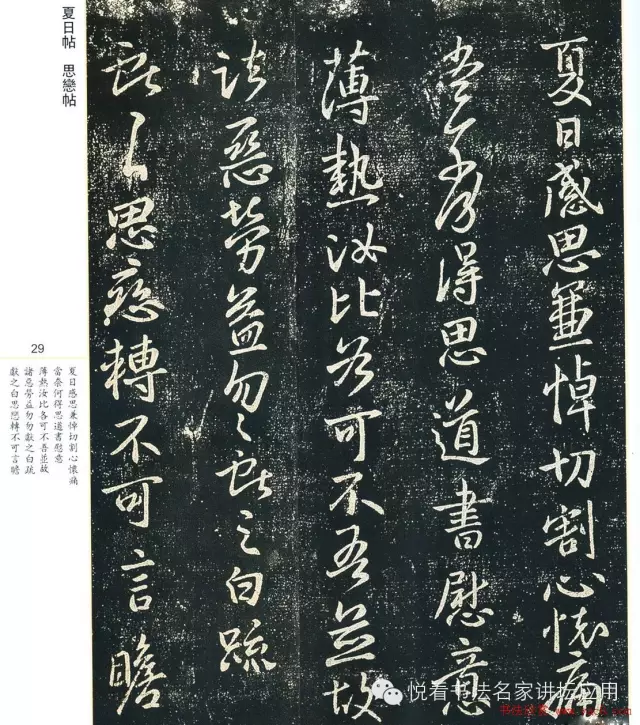 夏日帖 思戀帖
夏日感思兼悼切割心懷痛
當奈何得思道書慰意
薄熱汝比各可不吾並故
諸惡勞益勿勿獻之白疏
獻之白思戀轉不可言瞻
29
夏日感思兼悼切割心懷痛
當奈何得思道書慰意
薄熱汝比各可不吾並故
諸惡勞益勿勿獻之白疏
獻之白思戀轉不可言瞻
悦看书法名家讲坛应用